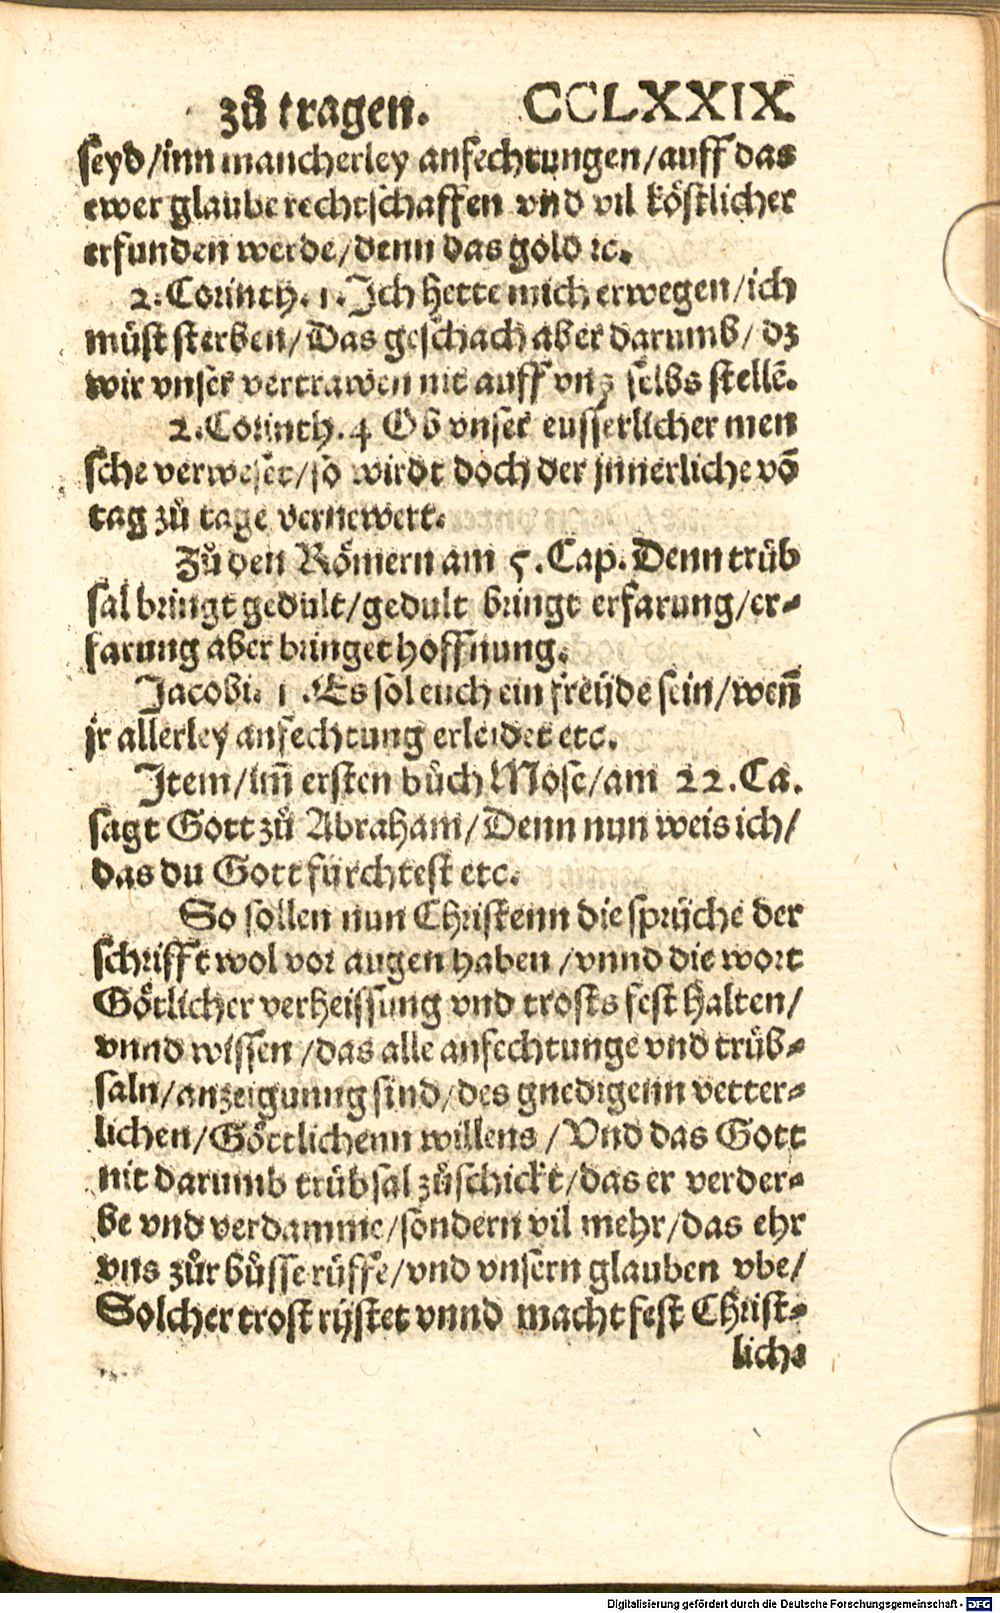 zů tragen. CCLXXIX
seyd/inn mancherley anfechtungen/auff das
ewer glaube rechtschaffen vnd vil köstlicher
erfunden werde/denn das gold ꝛc.
2. Corinth. 1. Ich hette mich erwegen/ich
müst sterben/Das geschach aber darumb/ dz
wir vnser vertrawen nit auff vns selbs stellē.
2. Corinth. 4 Ob vnser eusserlicher men
sche verweset/so wirdt doch der jnnerliche vō
tag zů tage vernewert.
Zů den Römern am 5. Cap. Denn trüb
sal bringt gedult/gedult bringt erfarung/er-
farung aber bringet hoffnung.
Jacobi. 1 .Es sol euch ein freüde sein/weñ
jr allerley anfechtung erleidet etc.
Item/im̄ ersten bůch Mose/am 22. Ca.
sagt Gott zů Abraham/Denn nun weis ich/
das du Gott fürchtest etc.
So sollen nun Christenn die sprüche der
schrifft wol vor augen haben /vnnd die wort
Götlicher verheissung vnd trosts fest halten/
vnnd wissen /das alle anfechtunge vnd trüb-
saln/anzeigunng sind/des gnedigenn vetter-
lichen/Göttlichenn willens /Vnd das Gott
nit darumb trübsal zůschickt/das er verder-
be vnd verdamme/sondern vil mehr/das ehr
vns zůr bůsse rüffe/vnd vnsern glauben vbe/
Solcher trost rüstet vnnd macht fest Christ-
liche
Digitalisierung gefördert durch die Deutsche Forschungsgemeinschaft - DFG